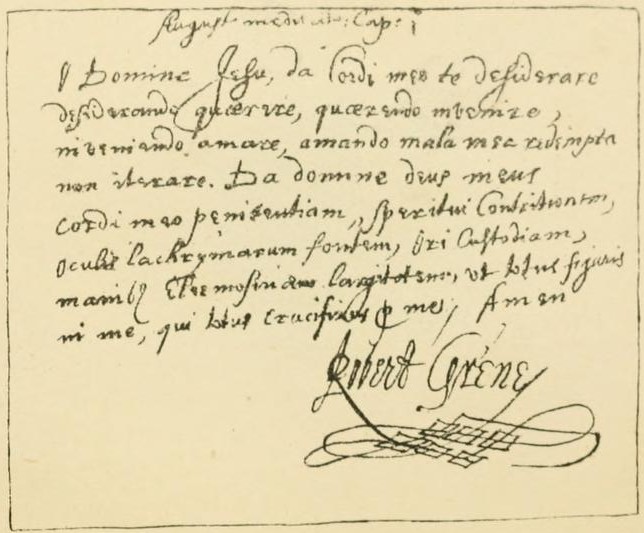 August: meditat: Cap: i
O Domine Jesu, da Cordi meo te desiderare
desiderando quaerere, quaerendo invenire,
inveniendo amare, amando mala mea redempta
non iterare. Da domine deus meus
Cordi meo penitentiam, Speritui Contritionem,
oculis lachrymarum fontem, Ori Custodiam,
manibꝫ Eleemosinam largitatem, ut totus figuris
in me, qui totus Crucifixus ꝑ me, Amen
Robert Grene